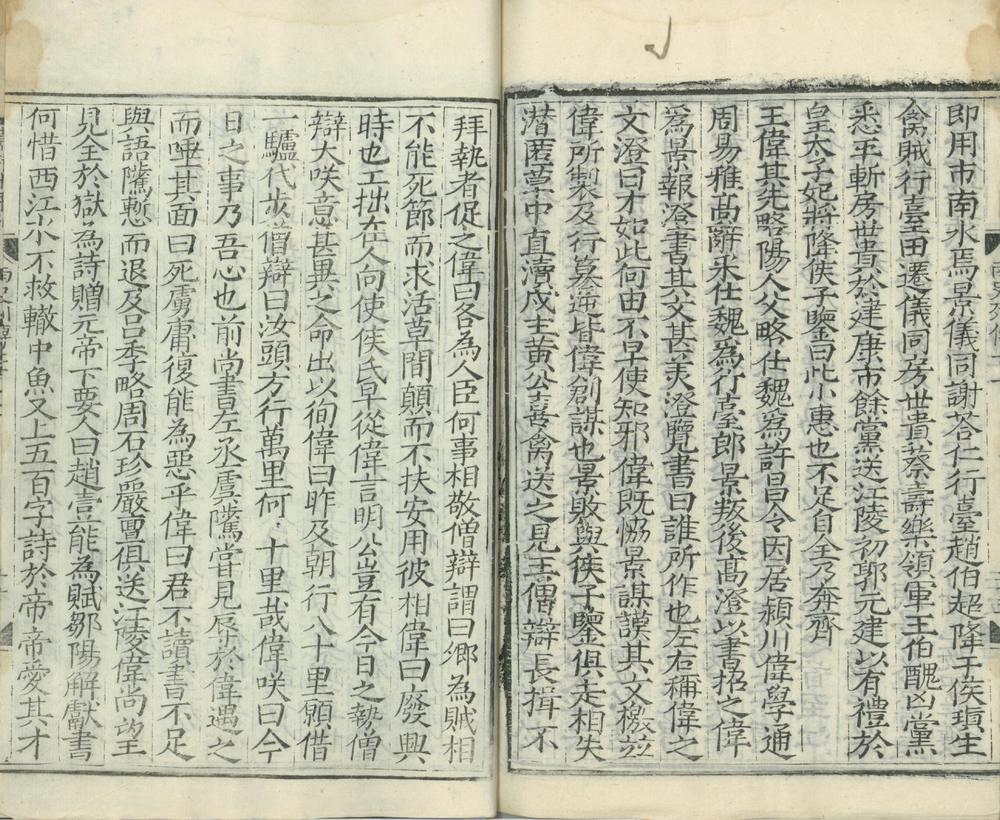 即用市南水焉景儀同謝荅仁行臺趙伯超降于侯瑱生
禽賊行臺田遷儀同房世貴蔡壽樂領軍王伯醜凶黨
悉平斬房世貴於建康市餘黨送江陵初郭元建以有禮於
皇太子妃將降侯子鑒曰此小惠也不足自全乃奔齊
王偉其先略陽人父略仕魏爲許昌令因居潁川偉學通
周易雅高辭采仕魏爲行臺郎景叛後高澄以書招之偉
爲景報澄書其文甚美澄覽書曰誰所作也左右稱偉之
文澄曰才如此何由不早使知邪偉既恊景謀謨其文檄並
偉所製及行篡逆皆偉創謀也景敗與侯子鑒俱走相失
潜匿草中直瀆戍主黄公喜禽送之見王僧辯長揖不
拜執者促之偉曰各為人臣何事相敬僧辯謂曰卿為賊相
不能死節而求活草間顛而不扶安用彼相偉曰廢興
時也工拙在人向使侯氏早從偉言明公豈有今日之執僧
辯大咲意甚異之命出以徇偉曰昨及朝行八十里願借
一驢代步僧辯曰汝頭方行萬里何八十里哉偉咲曰今
日之事乃吾心也前尚書左丞虞隲嘗見辱於偉遇之
而唾其面曰死虜庸復能為惡乎偉曰君不讀書不足
與語隲慙而退及吕季略周石珍嚴亶俱送江陵偉尚望
見全於獄為詩贈元帝下要人曰趙壹能為賦鄒陽解獻書
何惜西江水不救轍中魚又上五百字詩於帝帝愛其才